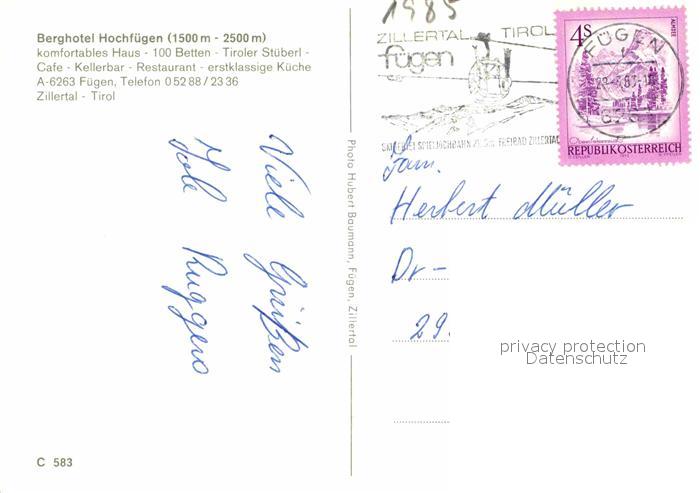 Berghotel Hochfügen (1500 m - 2500 m)
komfortables Haus - 100 Betten - Tiroler Stüberl -
Cafe - Kellerbar - Restaurant - erstklassige Küche
A-6263 Fügen, Telefon 0 52 88 / 23 36
Zillertal - Tirol
Viele Grüßen
Ruggero
Photo Hubert Baumann, Fügen, Zillertal
C 583
1985
ZILLERTAL TIROL
fügen
SPIELJOCHBAHN
FREIBAD ZILLERTAL
4S
ALMSEE
FÜGEN
REPUBLIK ÖSTERREICH
Fam.
Herbert Müller
Dr -
29.
privacy protection
Datenschutz